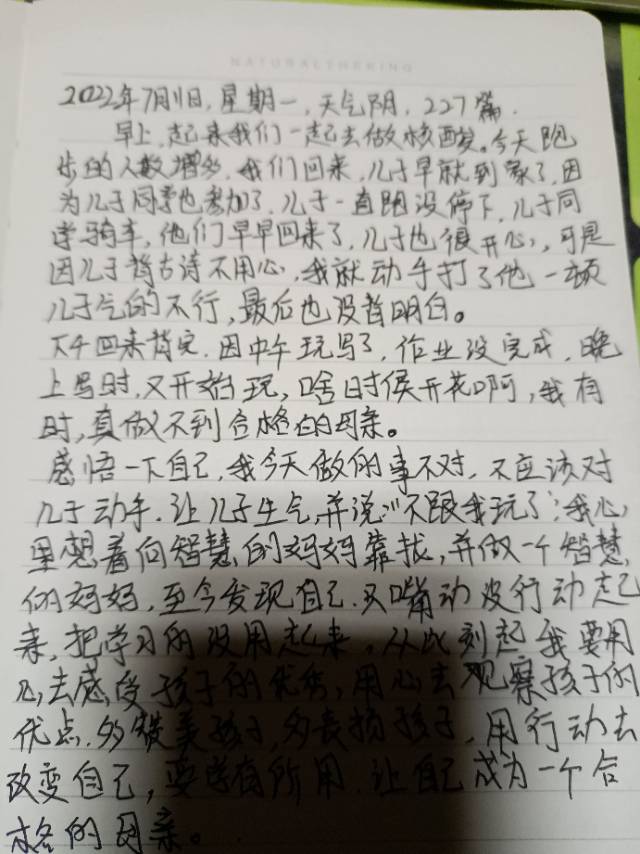 NATURALTHKING
2022年7月11日，星期一，天气阴，227篇．
早上，起来我们一起去做核酸。今天跑
步的人数增多，我们回来，儿子早就到家了，因
为儿子同学也参加了，儿子一直跑没停下，儿子同
学骑车，他们早早回来了，儿子也很开心，可是
因儿子背古诗不用心，我就动手打了他一顿
儿子气的不行，最后也没背明白。
下午回来背完，因中午玩写了，作业没完成，晚
上写时，又开始玩，啥时候开花啊，我有
时，真做不到合格的母亲。
感悟一下自己，我今天做的事不对，不应该对
儿子动手．让儿子生气，并说：“不跟我玩了”，我心
里想着向智慧的妈妈靠拢，并做一个智慧
的妈妈，至今发现自己，只嘴动没行动起
来，把学习的没用起来，从此刻起我要用
心去感受孩子的优秀，用心去观察孩子的
优点，多赞美孩子，多表扬孩子，用行动去
改变自己，要学有所用，让自己成为一个合
格的母亲。